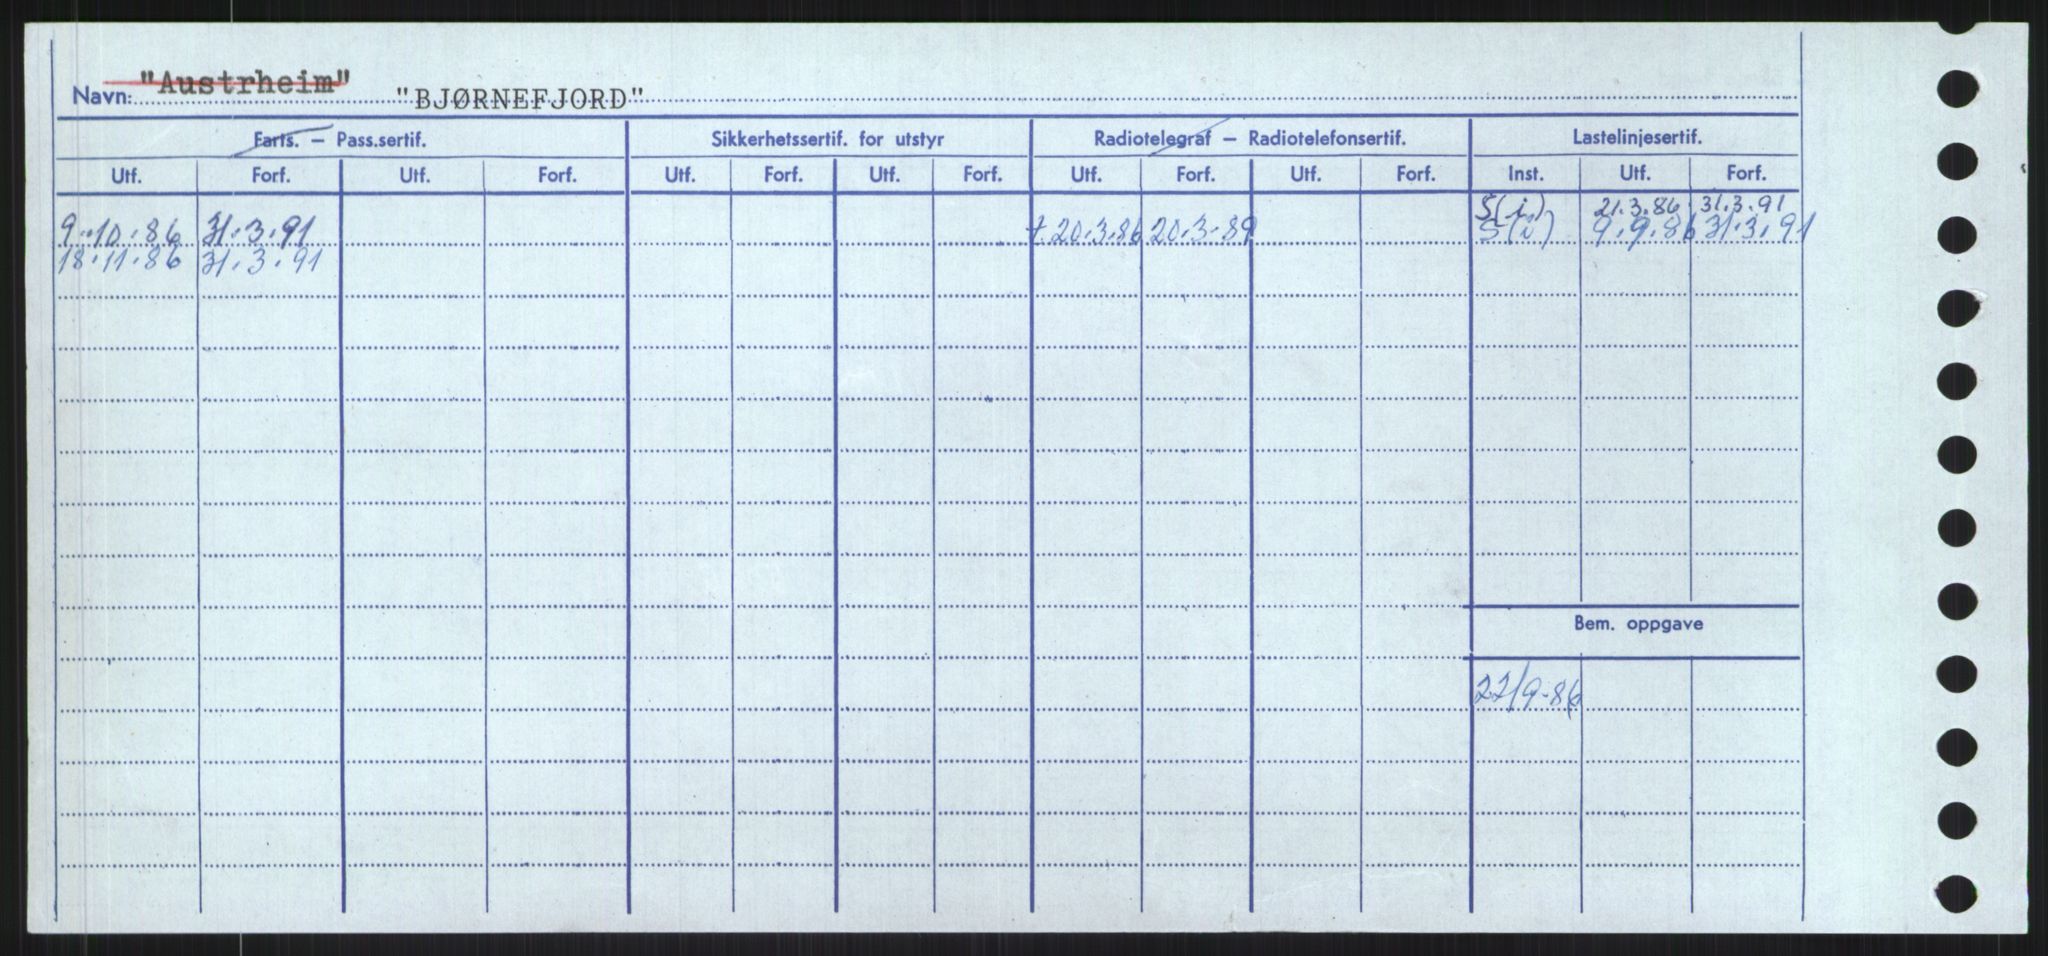 Navn: "Austrheim" "BJØRNEFJORD"
Farts. – Pass.sertif. Sikkerhetssertif. for utstyr Radiotelegraf – Radiotelefonsertif. Lastelinjesertif.
Utf. Forf. Utf. Forf. Utf. Forf. Utf. Forf. Utf. Forf. Utf. Forf. Inst. Utf. Forf.
S(i) 21.3.86 31.3.91
9.10.86 31.3.91 t. 20.3.86 20.3.89 S(i) 9.9.86 31.3.91
18.11.86 31.3.91
Bem. oppgave
22/9-86